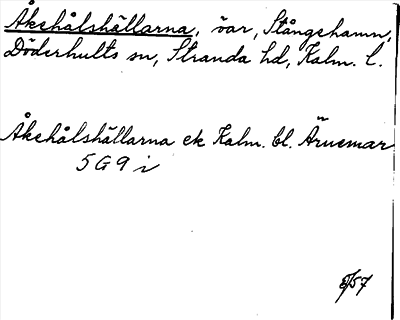 Åkehålshällarna, öar, Stångehamn,
Döderhults sn, Stranda hd, Kalm. l.
Åkehålshällarna ek Kalm. bl. Ärnemar
5G9 i
8/57